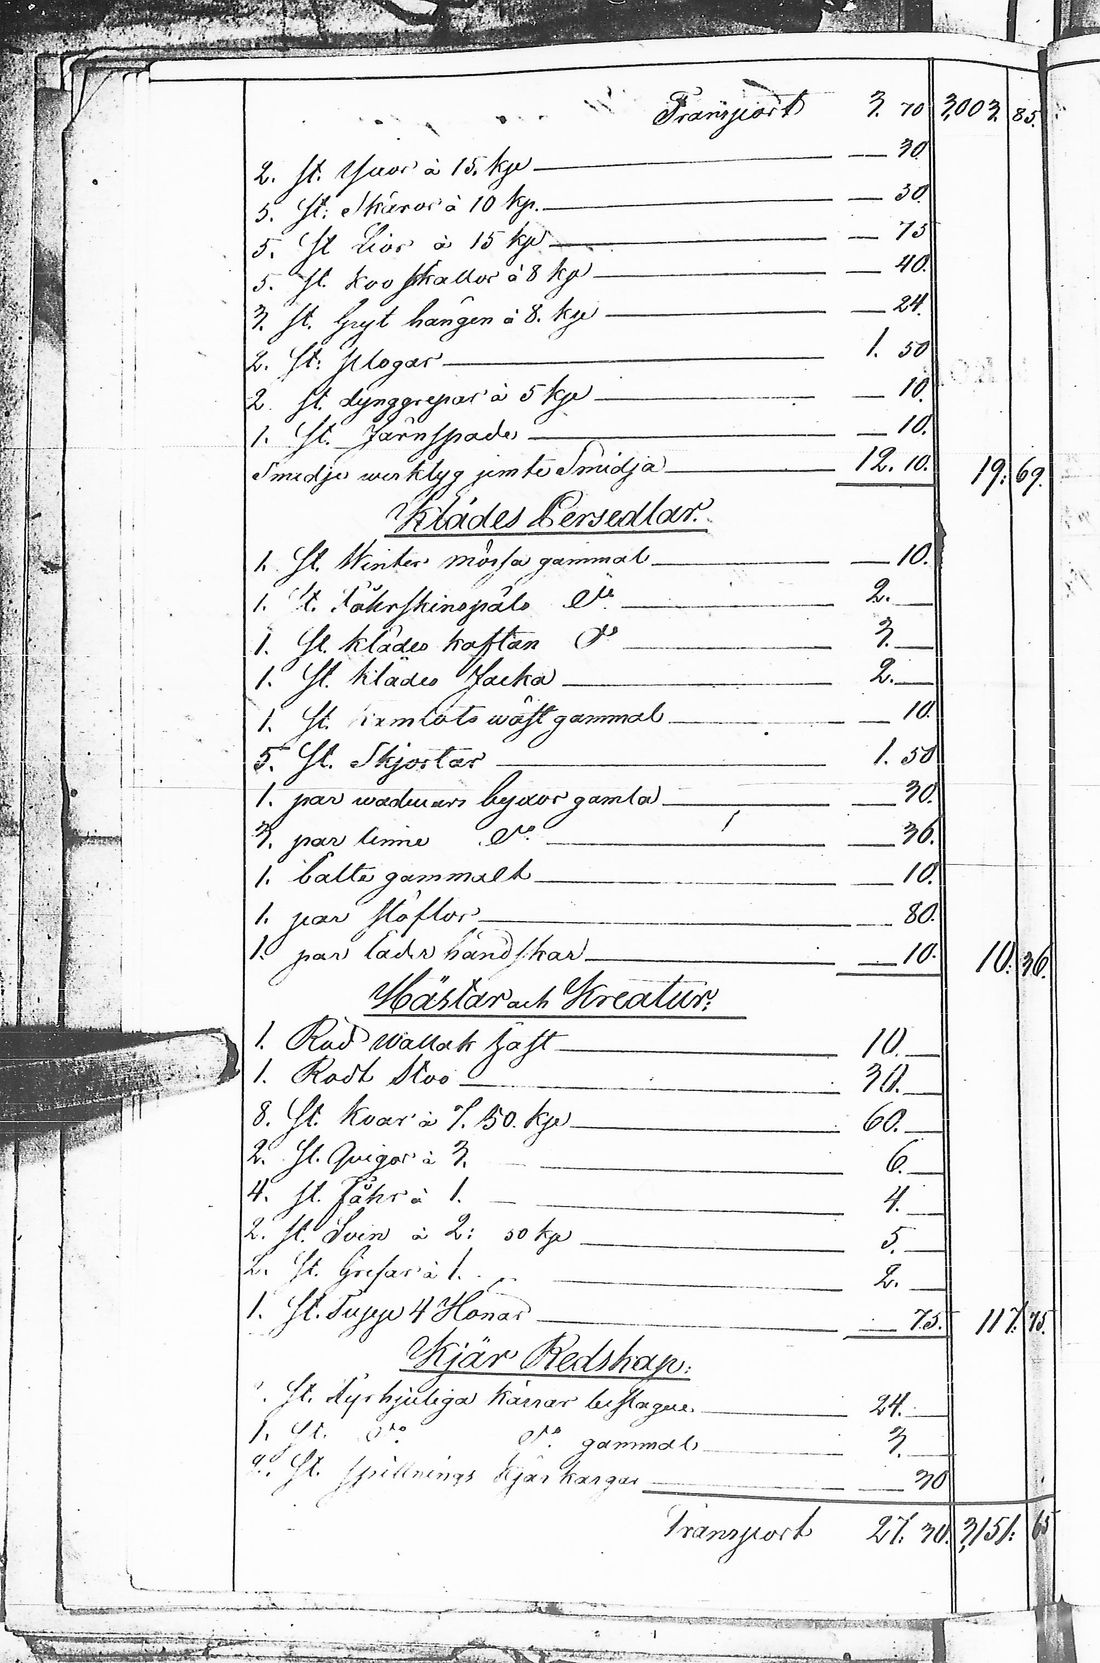 Transport 3. 70 3,003. 85.
2. St. Yxor à 15. kp — 30.
5. St: Skäror à 10 kp. — 50.
5. St Liar à 15 kp — 75
5. St. Koo skallor à 8 kp — 40.
3. St. Gryt hängen à 8. kp — 24.
2. St: Plogar — 1. 50
2 St. dynggrepar à 5 kp — 10.
1. St. Järnspade — 10.
Smedje werktyg jemte Smidja — 12. 10. 19: 69.
Klädes Persedlar.
1. St. Winter mössa gammal — 10.
1. St. Fåhrskinspäls Do — 2. —
1. St. klädes kaftan Do — 3. —
1. St. Klädes Jacka — 2. —
1. St. Kamlots wäst gammal — 10.
5. St. Skjortar — 1. 50
1. par wadmars byxor gamla — 30.
3. par linne Do. — 36.
1. bälte gammalt — 10.
1. par stöflor — 80.
1. par Läder handskar — 10. 10. 36.
Hästar och Kreatur:
1. Röd Wallak häst — 10. —
1. Rödt Stoo — 30. —
8. St. Koar à 7. 50. kp — 60. —
2. St. Quigor à 3. — 6. —
4. St. Fåhr à 1. — 4. —
2. St. Svin à 2: 50 kp — 5. —
2. St. Grisar à 1. — 2. —
1. St. Tupp 4 Hönor — 75. 117. 75.
Kjär Redskap:
St. fyrhjuliga kärrar beslagne. — 24. —
1. St. Do. Do. gammal — 3. —
2. St. Spillnings kjär kargar — 30
Transport 27. 30. 3,151: 65